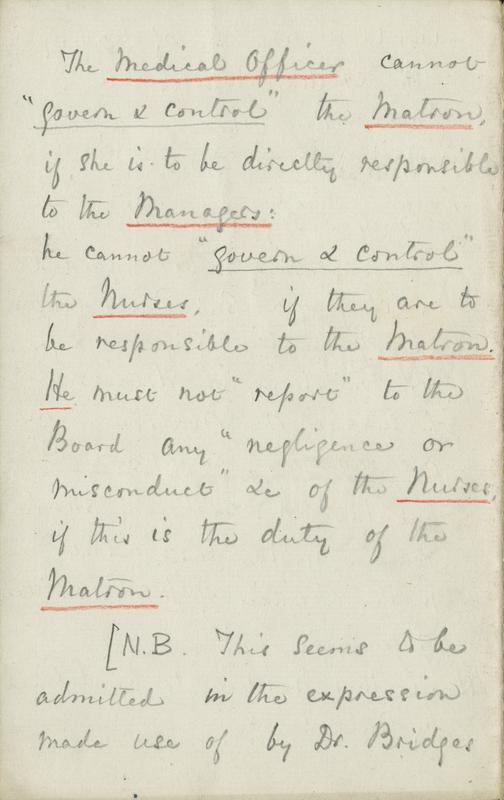 The Medical Officer cannot
"govern & control" the Matron,
if she is to be directly responsible
to the Managers:
he cannot "govern & control"
the Nurses, if they are to
be responsible to the Matron.
He must not "report" to the
Board any "negligence or
misconduct" &c of the Nurses,
if this is the duty of the
Matron.
[N.B. This seems to be
admitted in the expression
made use of by Dr. Bridges